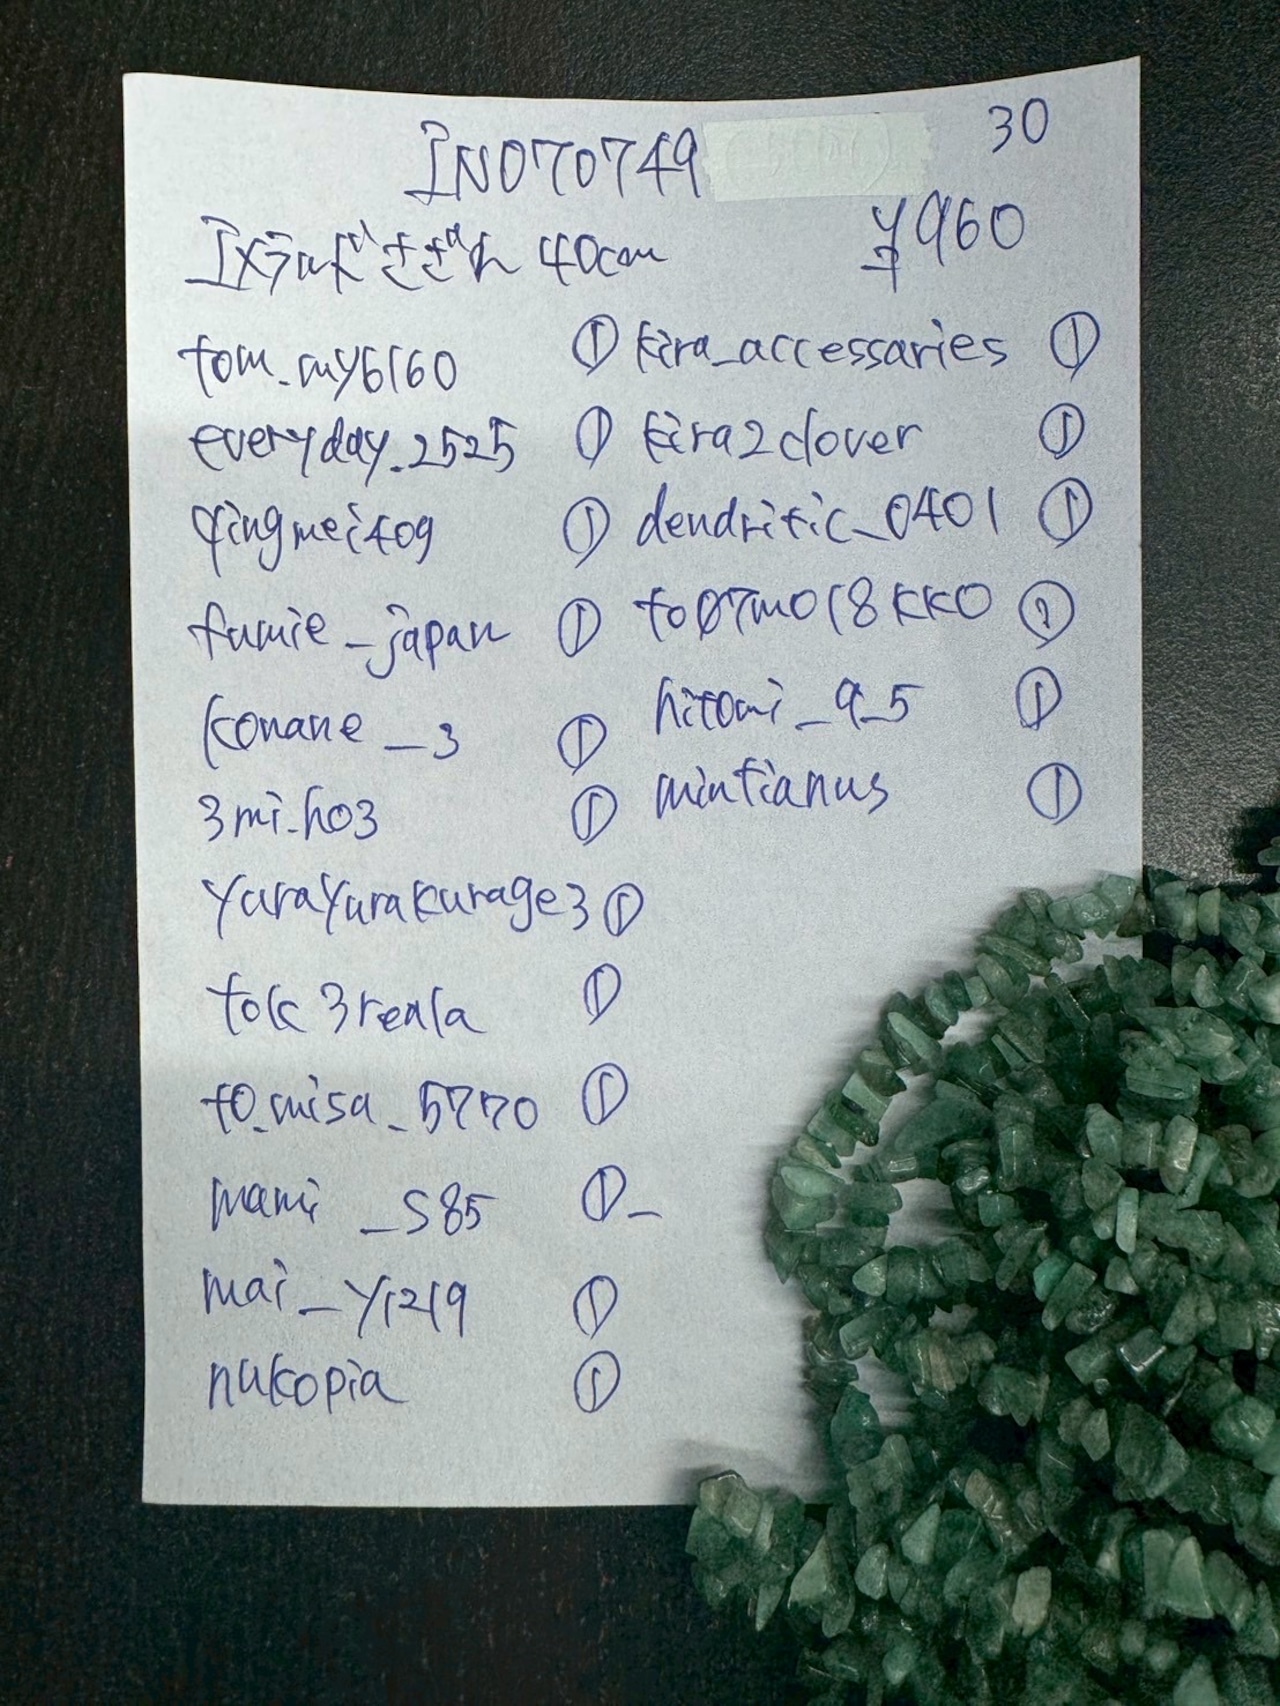 IN070749
30
エメラルドさざれ 40cm
¥960
tom_my6160 ①
everyday.2525 ①
qingmei409 ①
fumie_japan ①
konane_3 ①
3mi_ho3 ①
yurayurakurage3 ①
tok3reala ①
to_misa_5770 ①
mami_s85 ①
mai_y1219 ①
nukopia ①
kira_accessaries ①
kira2clover ①
dendritic_0401 ①
to07mo18kko ①
hitomi_9_5 ①
mintianus ①